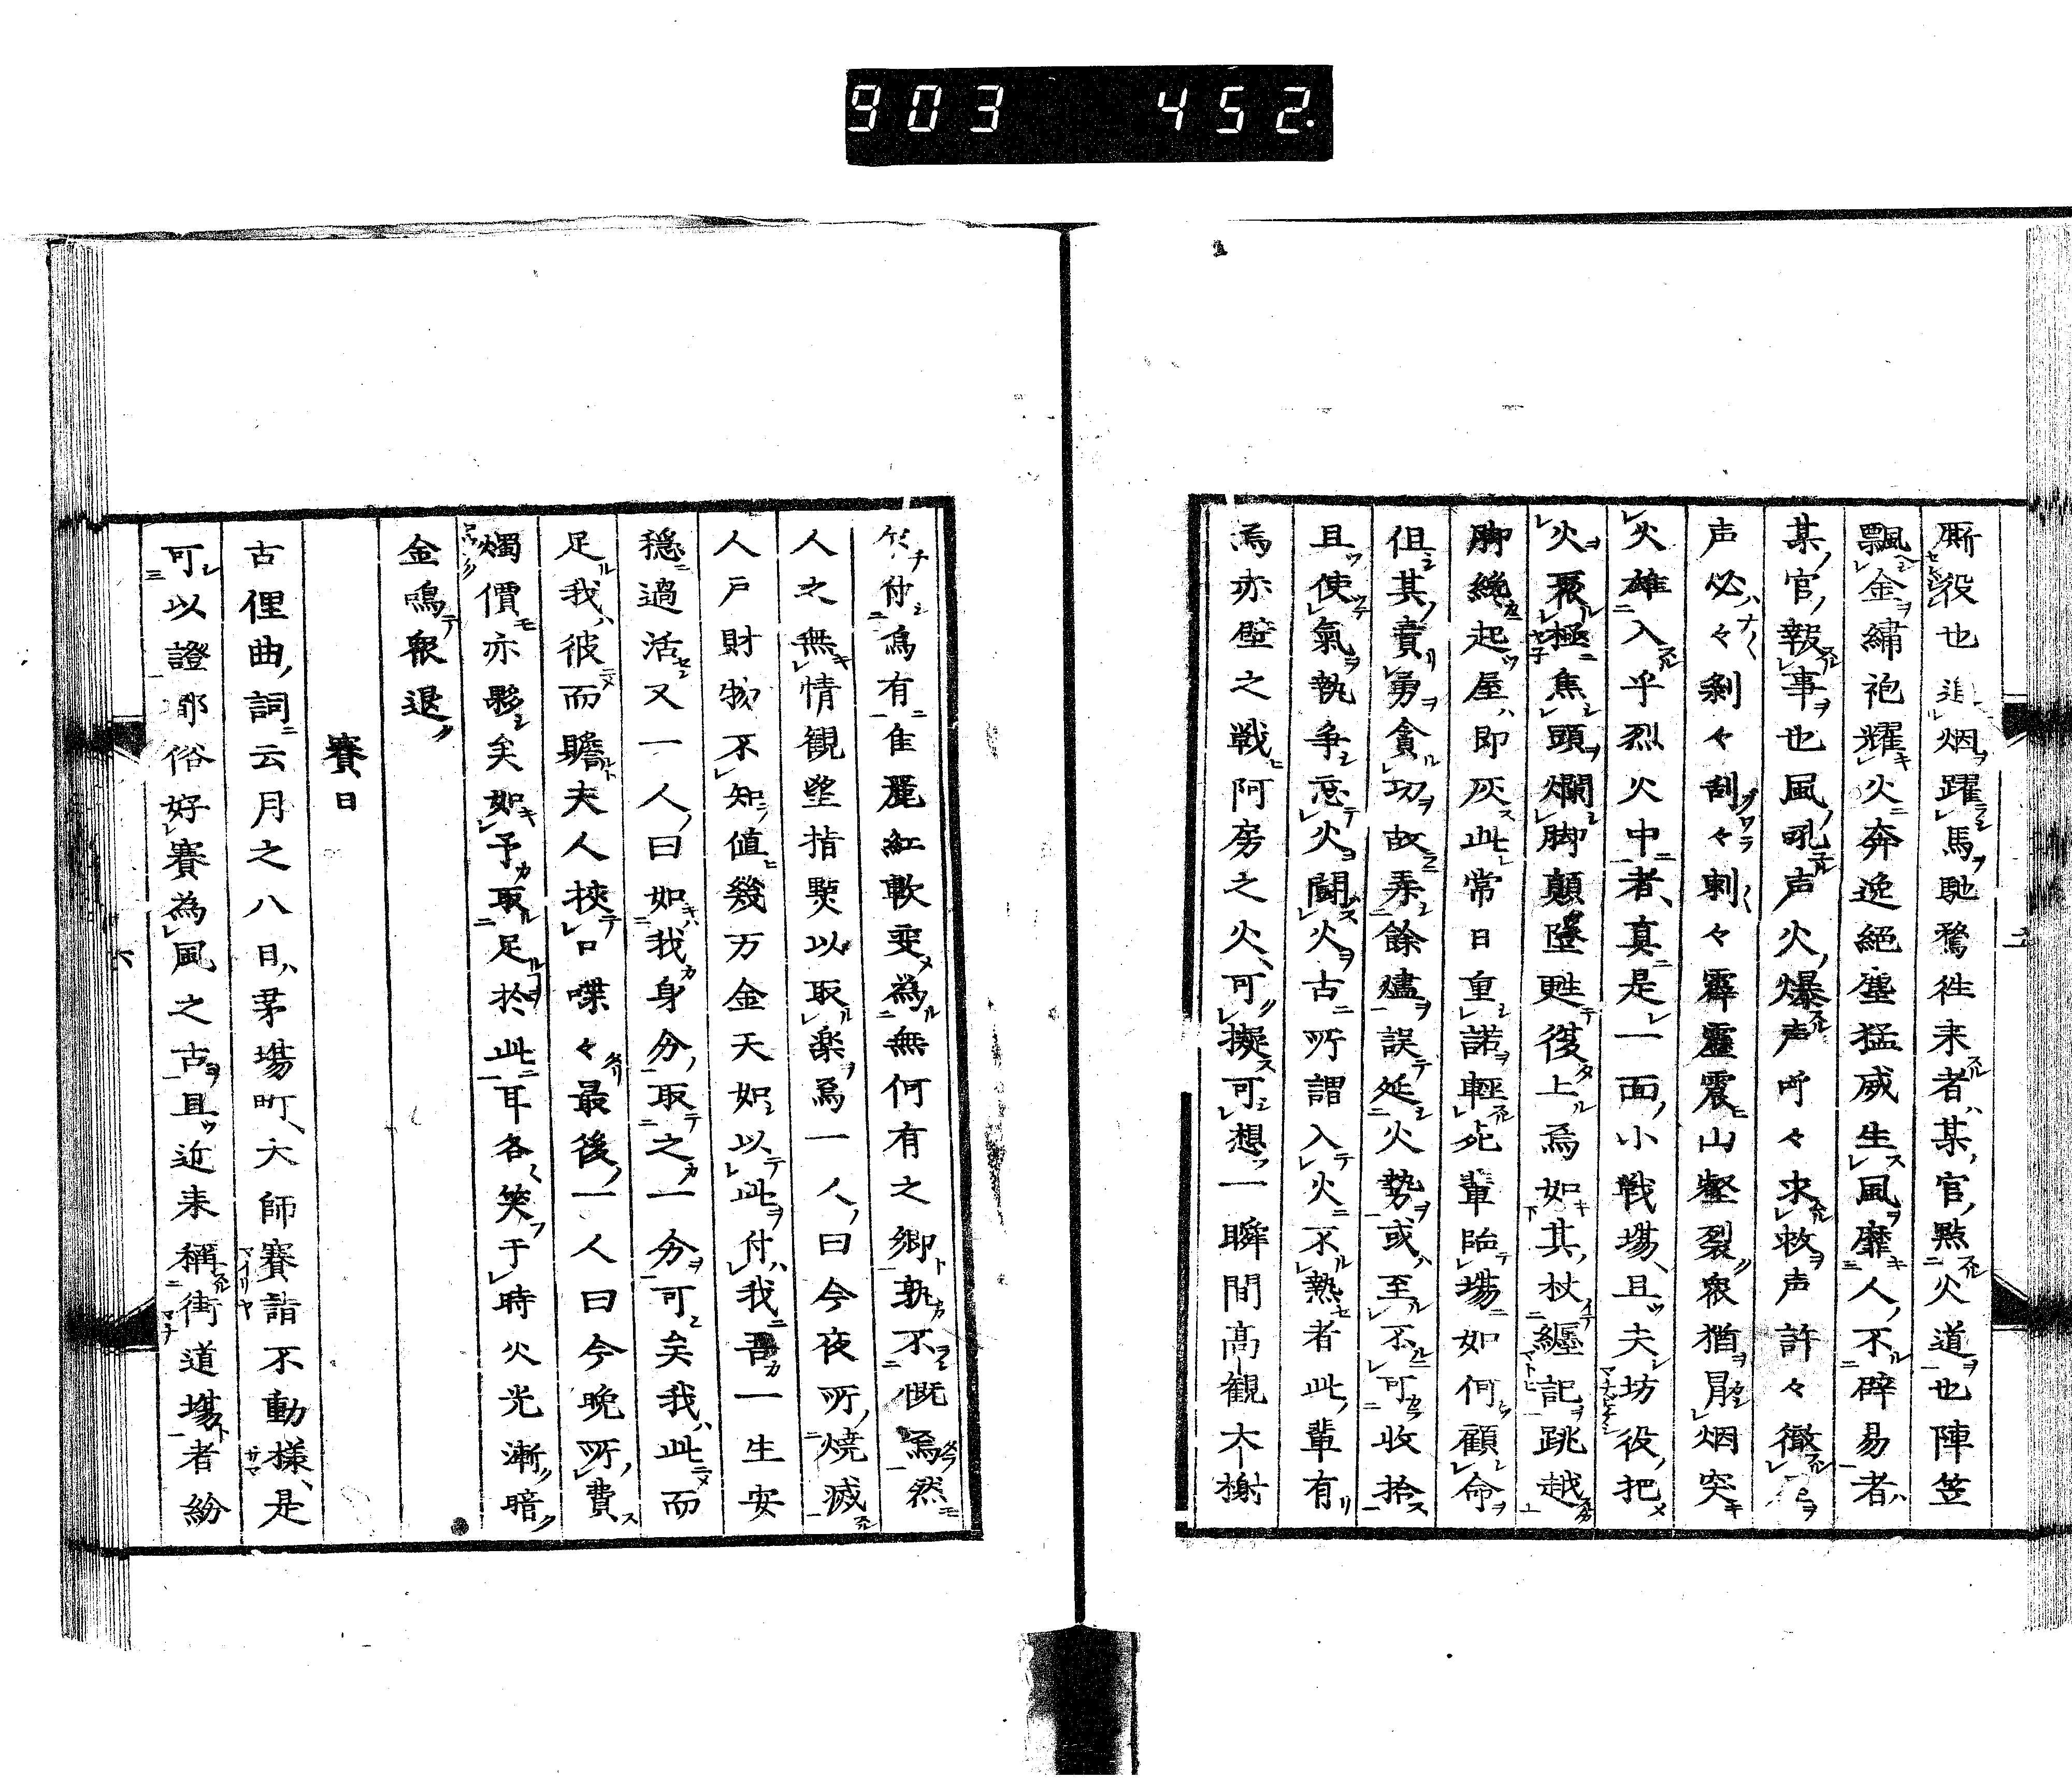 903 452.
厮役也追烟躍馬馳騖徃来者某官點火道也陣笠
飄金繡袍耀火奔逸絕塵猛威生風靡人不辟易者
某官報事也風吼声火爆声吁々求救声許々徹
声必々剝々刮々刺々霹靂震山壑裂衆猶冒烟突
火雄入乎烈火中者真是一面小戦場且夫坊役把
火褁極焦頭爛脚顛墜甦復上焉如其杖纏記跳越
脚纔起屋即灰此常日重諾輕死輩臨場如何顧命
但其責勇貪功故弄餘燼誤延火勢或至不可收拾
且使氣執爭忘火鬪火古所謂入火不熱者此輩有
焉亦壁之戦阿房之火可擬可想一瞬間高観大榭
付烏有佳麗紅軟変為無何有之郷孰不慨焉然
人之無情観望指㸃以取楽焉一人曰今夜所燒滅
人戸財物不知値幾万金天如以此付我吾一生安
穏過活又一人曰如我身分取之一分可矣我此而
足我彼而贍夫人挾口喋々最後一人曰今晩所費
燭價亦夥矣如予取足於此耳各笑于時火光漸暗
金鳴衆退
賽日
古俚曲詞云月之八日茅場町大師賽詣不動様是
可以證都俗好賽為風之古且近来稱街道場者紛
六